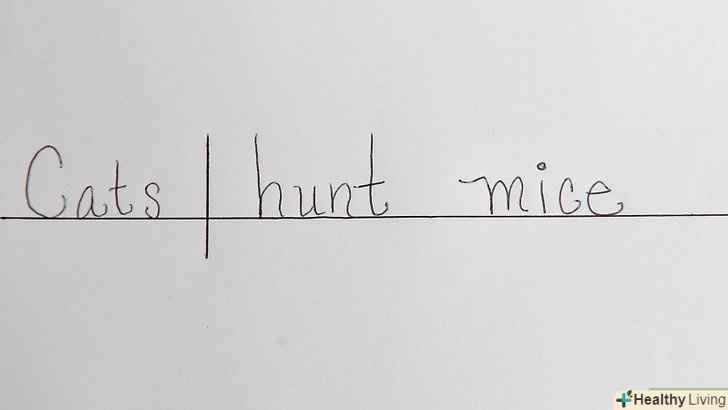 Cats hunt mice
Healthy Living